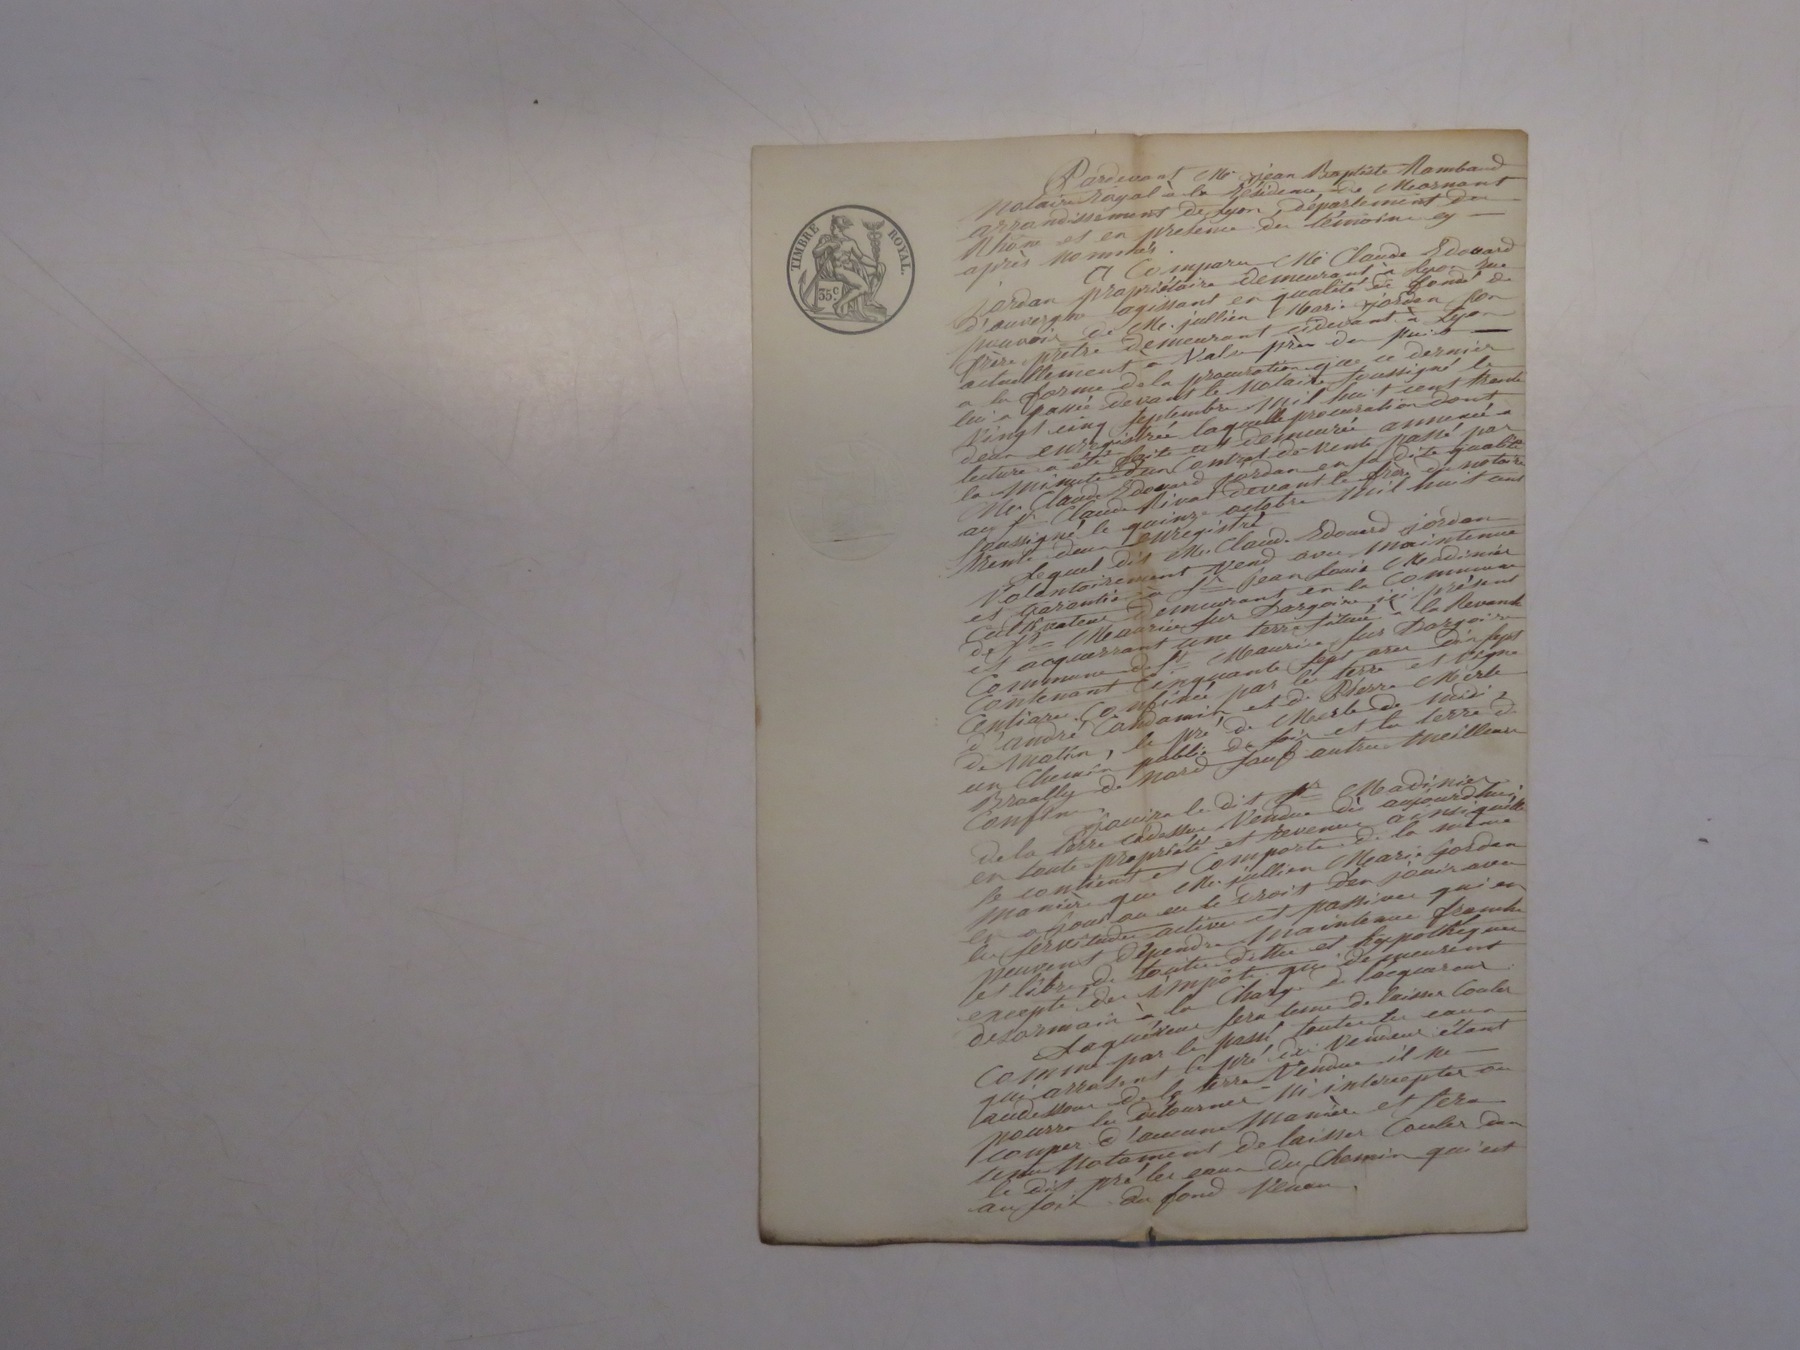 TIMBRE ROYAL.
35c.
Pardevant Me jean Baptiste Rambaud
Notaire Royal à la Résidence de Mornant
arrondissement de Lyon, département du
Rhône et en présence des témoins cy
après nommés.
A Comparu Mr Claude Edouard
jordan propriétaire demeurant à Lyon rue
d'auvergne agissant en qualité de fondé de
pouvoir de Mr. jullien Marie jordan, son
frère prêtre demeurant cidevant à Lyon
actuellement à Vals près du puis
a la forme de la procuration que ce dernier
lui a passée devant le Notaire soussigné le
vingt cinq septembre mil huit cent trente
deux enregistrée laquelle procuration dont
lecture a été faite est demeurée annexée a
la Minute d'un Contrat de vente passé par
Mr. Claude Edouard jordan en sa dite qualité
au sr Claude Rival devant le dit notaire
soussigné le quinze octobre mil huit cent
trente deux enregistré
Lequel dit Mr. Claude Edouard jordan
Volontairement vend avec maintenue
et garantie à sr jean Louis Madinier
Cultivateur demeurant en la Commune
de st Maurice sur Dargoire ici présent
et acquerrant une terre située à la Revanche
Commune de st Maurice sur Dargoire
Contenant Cinquante sept ares dix sept
Centiares Confinée par les terre et vigne
d'andré Candamin et de Pierre Merle
de matin, le pré de Merle de midi,
un Chemin public de soir et la terre de
Brailly de nord sauf autres meilleurs
Confins.
jouira le dit sr Madinier
de la terre cidessus vendue dès aujourdhui
en toute propriété et revenus ainsi qu'elle
se contient et comporte de la même
manière que Mr. jullien Marie jordan
en a joui ou eu le droit d'en jouir avec
les servitudes actives et passives qui en
peuvent dépendre maintenue franche
et libre de toutes dettes et hypothèques
excepté des impôts qui demeurent
désormais à la Charge de l'acquereur
L'aquéreur sera tenu de laisser Couler
Comme par le passé toutes les eaux
qui arrosent le pré du vendeur étant
audessous de la terre vendue il ne
pourra les détourner ni intercepter ou
couper d'aucune manière et sera
tenu Notament de laisser Couler dans
le dit pré les eaux du Chemin qui est
au soir du fond vendu.